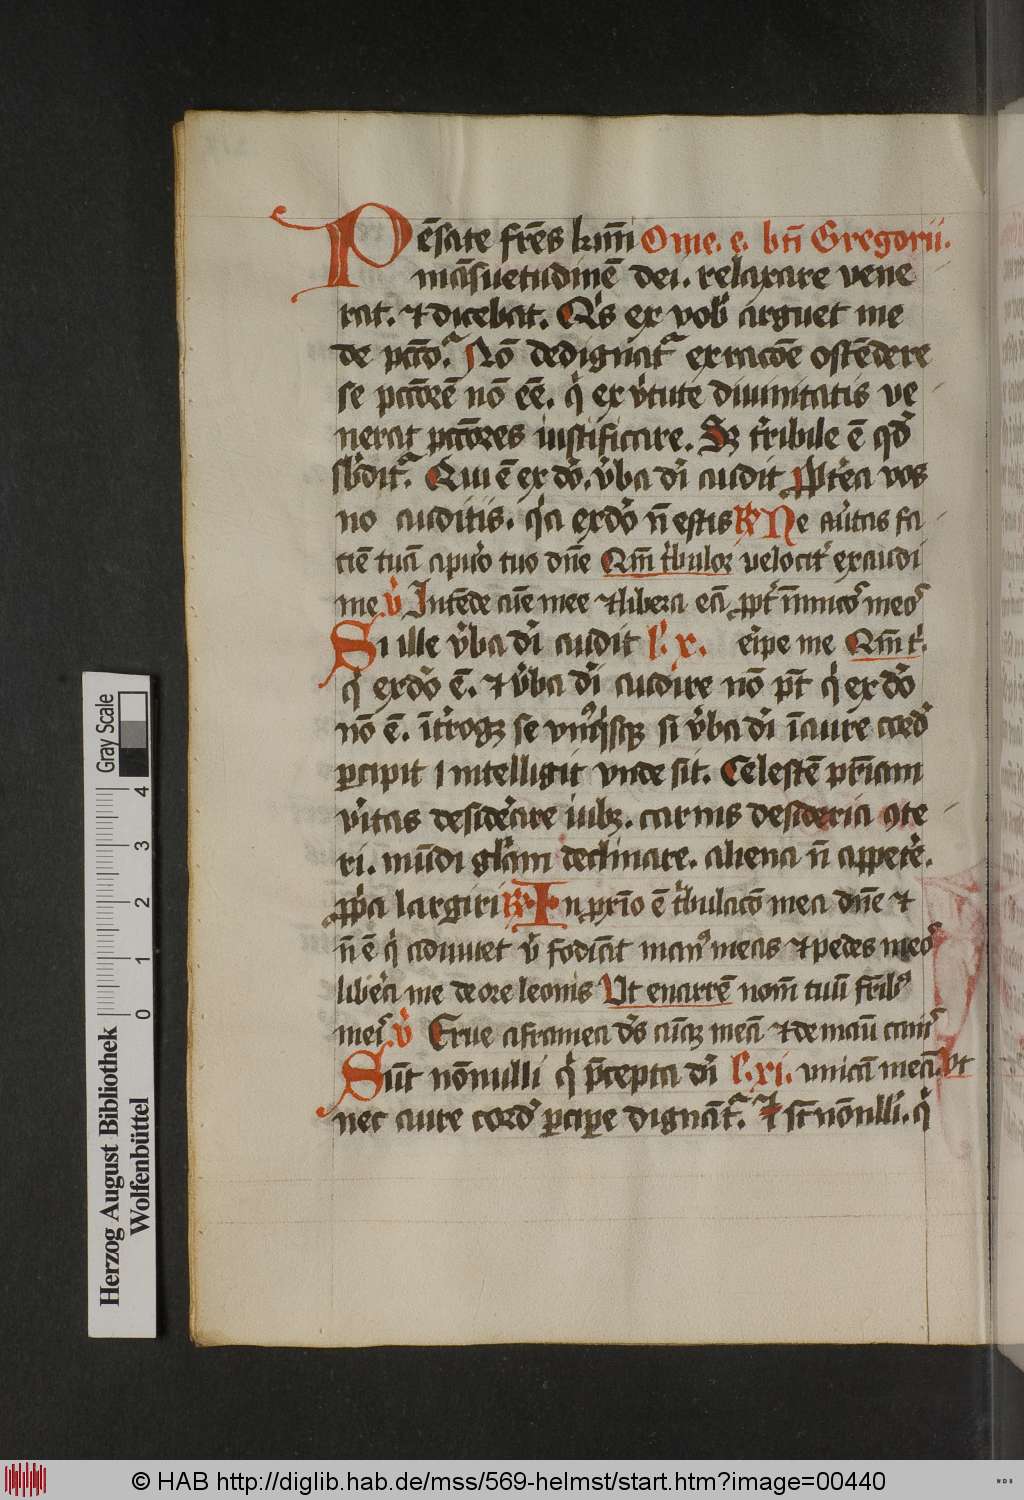 Pēsate frēs kr̄mi Ome. e. bti Gregorii.
māsuetudinē dei. relaxare vene
rat. ⁊ dicebat. Qis ex vob arguet me
de pctō. Nō dedignatr ex racōe ostēdere
se pctōrē nō eē. qi ex vtute diuinitatis ve
nerat pctōres iustificare. Sz tribile ē qd
sbditr. Qui ē ex dō. vba di audit ppterea vos
no auditis. qa ex dō n̄ estis R Ne autas fa
ciē tuā a puo tuo dn̄e Qm̄ tbulor velocit exaudi
me V Intēde aīe mee ⁊ libera eā ppt inimicos meos
Si ille vba di audit l. x. eipe me Qm̄ t.
qi ex dō ē. ⁊ vba di audire nō pt̄ qi ex dō
nō ē. īterrogz se vnusqisqz si vba di ī aure cord
pcipit ⁊ intelligit vnde sit. Celestē priam
vitas desiderare iubz. carnis desideria ꝯte
ri. mūdi gliam declinare. aliena n̄ appetere.
ppa largiri R In prīo ē tbulacō mea dn̄e ⁊
n̄ ē qi adiuuet vt fodiāt manus meas ⁊ pedes meos
libera me de ore leonis Ut enarrē nom̄ tuū fribus
meis V Erue a framea ds aīaz meā ⁊ de manu canis
Sūt nōnulli qi pcepta di l. xi. vnicā meā Vt
nec aure cord pcipe dignātr. ⁊ st̄ nōnlli. qi
Herzog August Bibliothek
Wolfenbüttel
0 1 2 3 4
Gray Scale
© HAB http://diglib.hab.de/mss/569-helmst/start.htm?image=00440